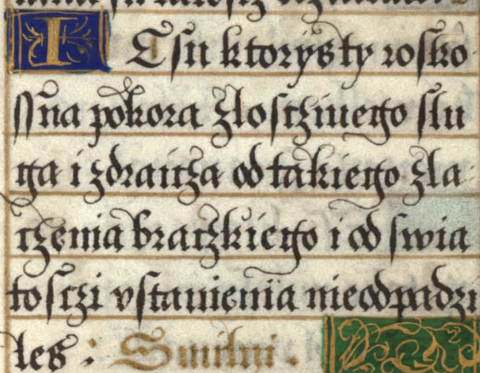 ITsu ktorysty rosko
ssna pokora zlosczinego slu
ga i zdraicza od takiego zla
czenia braczkiego i od swia
tosczi vstanienia nieodpadzi
les : Smilni .